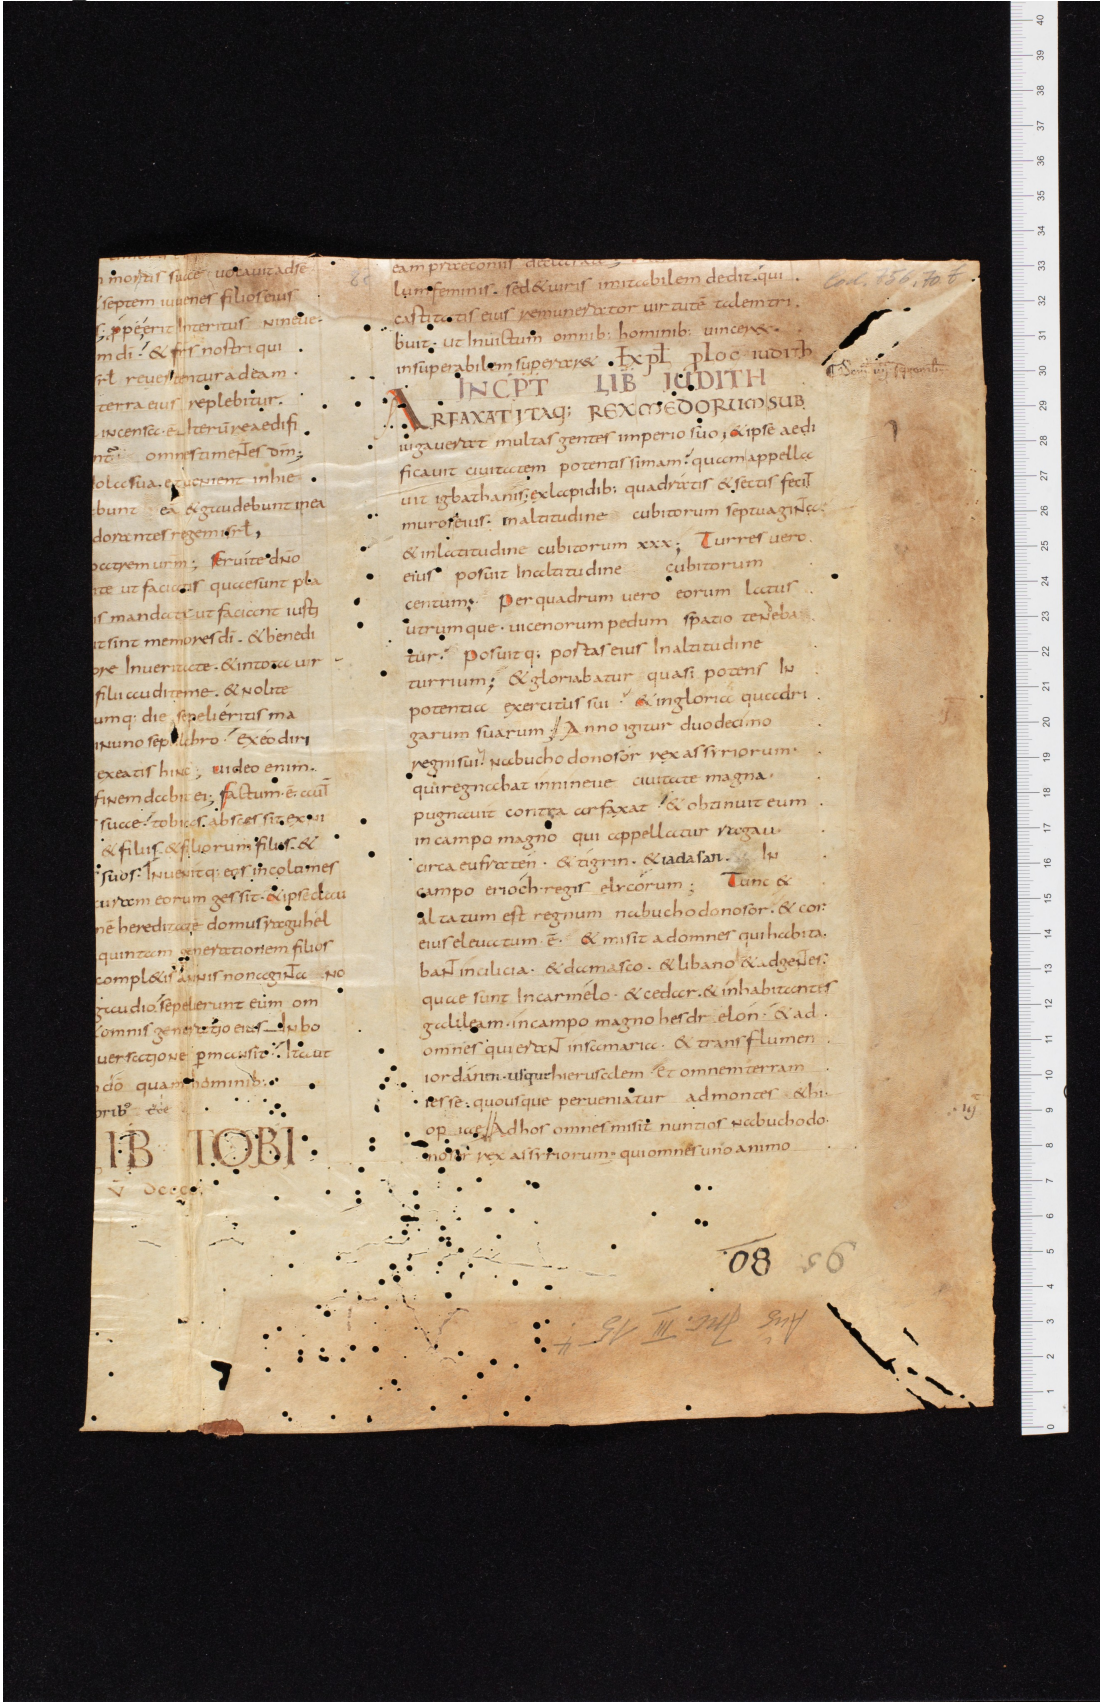 mortis suae uocauit adse
septem iuuenes filios eius
s; ppe erit Interitus nineue·
m dī· & frs nostri qui
srł reuertentur ad eam ·
terra eius replebitur.
incensa· ē Iterū reaedifi
omnes timeNtes dm̄;
dola sua· & uenient inhie
bunt eā & gaudebunt in ea
dorantes regem isrł,
patrem urm̄; seruite dn̄o
te ut faciatis quae sunt pla
is mandate ut faciant iusti
ut sint memores dī · & benedi
ore Inueritate · & intota uir
filii audite me · & Nolite
umq: die sepelieritis ma
iN uno sepulchro · Ex eo diri
exeatis hinc ; uideo enim ·
finem dabit ei; factum · ē · aut̄
suae · tobias · abscessit ex ni
& filiis · & filiorum filiis · &
suos · Inuenitq: eos incolumes
curam eorum gessit · & ipse clau
nē hereditate domus raguhel
quintam generationem filios
compl&is annis nonagiNta No
gaudio · sepelierunt eum om
omnis generatio eius IN bo
uersatione pmansit · Ita ut
dō quam hominib:
orib: tre
LIB TOBI
V dcccc
eam praeconiis declarate;
lum feminis · sed & uiris imitabilem dedit · qui
castitatis eius remunerator uirtutē talem tri
buit · ut Inuictum omnib: hominib: uincer& ·
insuperabilem superar& Expł ploc iudith
INCPT LIB IUDITH
ARFAXAT ITAQ: REX MEDORUM SUB
iugauerat multas gentes imperio suo ; & ipse aedi
ficauit ciuitatem potentissimam · quam appella
uit igbathanis; ex lapidib: quadratis & sectis fecit
muros eius · in altitudine cubitorum septuagiNta
& in latitudine cubitorum xxx ; Turres uero
eius posuit In altitudine cubitorum
centum; Per quadrum uero eorum latus
utrumque · uicenorum pedum spatio teNeba
tur · Posuitq: portas eius In altitudine
turrium ; & gloriabatur quasi potens IN
potentia exercitus sui · & in gloria quadri
garum suarum ; Anno igitur duodecimo
regni sui · nabuchodonosor rex assyriorum ·
qui regnabat in nineue ciuitate magna ·
pugnauit contra arfaxat · & obtinuit eum
in campo magno qui appellatur ragau ·
circa eufraten · & tigrin · & iadasan · IN
campo erioch · regis elycorum ; Tunc &
altatum est regnum nabuchodonosor · & cor
eius eleuatum · ē · & misit ad omnes qui habita
baNt in cilicia · & damasco · & libano & ad geNtes
quae sunt In carmelo · & cedar · & inhabitantes
galileam · in campo magno hesdrelon · & ad
omnes qui eraNt in samaria · & trans flumen
iordanen · usque hierusalem et omnem terram
iesse · quousque perueniatur ad montes &hi
op iae; Ad hos omnes misit nuntios nabuchodo
nosor rex assyriorum · qui omnes uno animo
08
95
Aug Inc. III 15 4